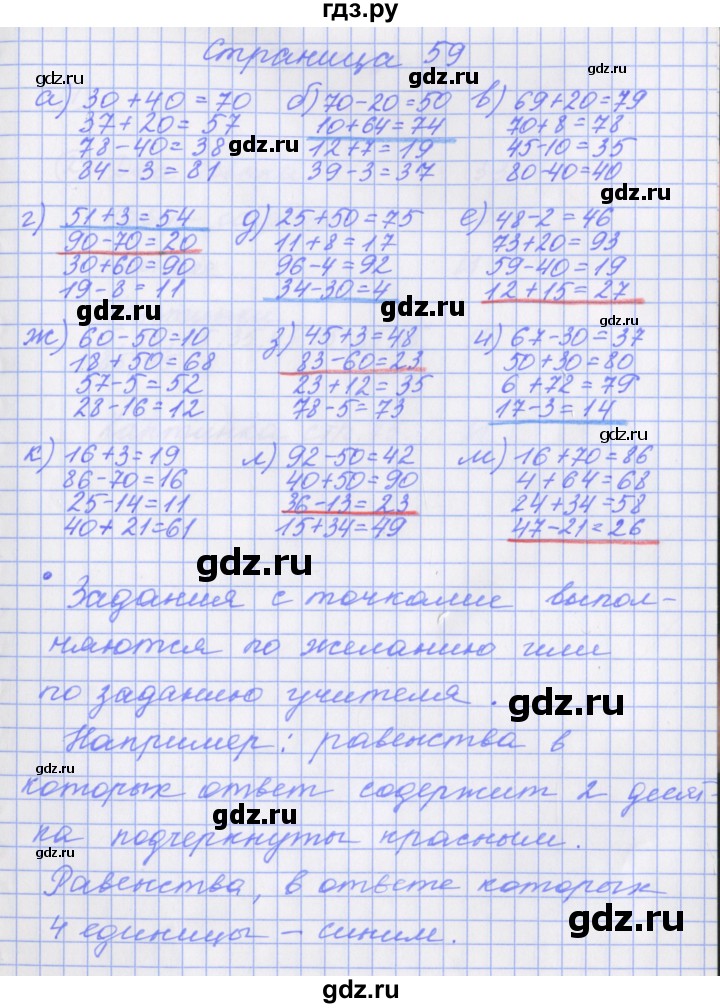 гдз.ру
Страница 59
gdz.ru gdz.ru gdz.ru
а) 30+40=70 б) 70-20=50 в) 69+20=79
37+20=57 10+64=74 70+8=78
78-40=38 12+7=19 45-10=35
84-3=81 39-3=37 80-40=40
gdz.ru gdz.ru
г) 51+3=54 д) 25+50=75 е) 48-2=46
90-70=20 11+8=17 73+20=93
30+60=90 96-4=92 59-40=19
19-8=11 34-30=4 12+15=27
gdz.ru gdz.ru gdz.ru
ж) 60-50=10 з) 45+3=48 и) 67-30=37
18+50=68 83-60=23 50+30=80
57-5=52 23+12=35 6+72=79
28-16=12 78-5=73 17-3=14
к) 16+3=19 л) 92-50=42 м) 16+70=86
86-70=16 40+50=90 4+64=68
25-14=11 36-13=23 24+34=58
40+21=61 15+34=49 47-21=26
gdz.ru gdz.ru
Задания с точками выпол-
няются по желанию или
по заданию учителя.
gdz.ru
Например: равенства в
gdz.ru gdz.ru
которых ответ содержит 2 десят-
gdz.ru
ка подчеркнуты красным.
gdz.ru
Равенства, в ответе которых
gdz.ru
4 единицы - синим.
gdz.ru
gdz.ru